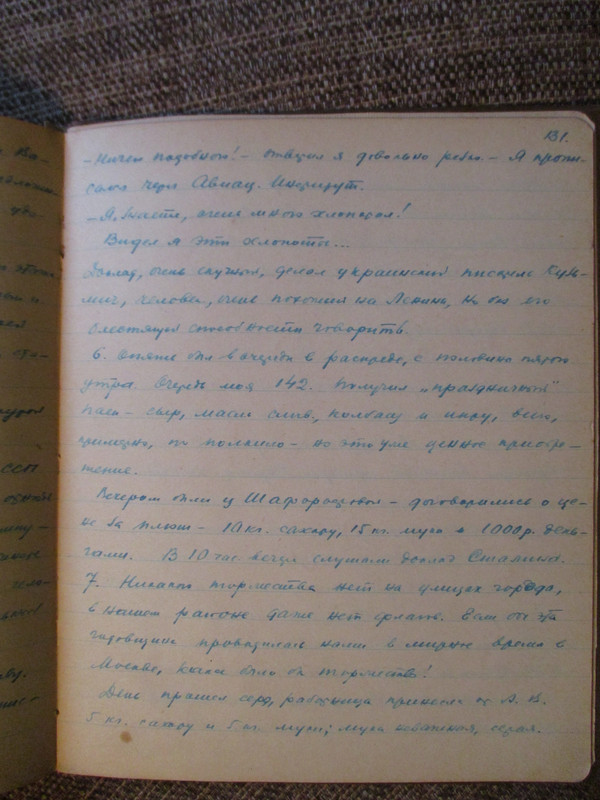 131.
- Ничего подобного! - отвечал я довольно резко. - Я пропи-
сался через Авиац. Институт.
- А, знаете, очень много хлопотал!
Видел я эти хлопоты...
Доклад, очень скучный, делал украинский писатель Кузь-
мич, человек, очень похожий на Ленина, но без его
блестящей способности говорить.
6. Опять был в очереди в распреде, с половины пятого
утра. Очередь моя 142. Получил „праздничный"
паек - сыр, масло слив., колбасу и икру, всего,
примерно, по полкило - но это уже ценное приобре-
тение.
Вечером были у - договорились о це-
не за плюш - 10 кг. сахару, 15 кг. муки и 1000 р. день-
гами. В 10 час. вечера слушали доклад Сталина.
7. Никакого торжества нет на улицах города,
в нашем районе даже нет флагов. Если бы эта
годовщина проводилась нами в мирное время в
Москве, какое было бы торжество!
День прошел серо, работница принесла от А. В.
5 кг. сахару и 5 кг. муки; мука неважная, серая.